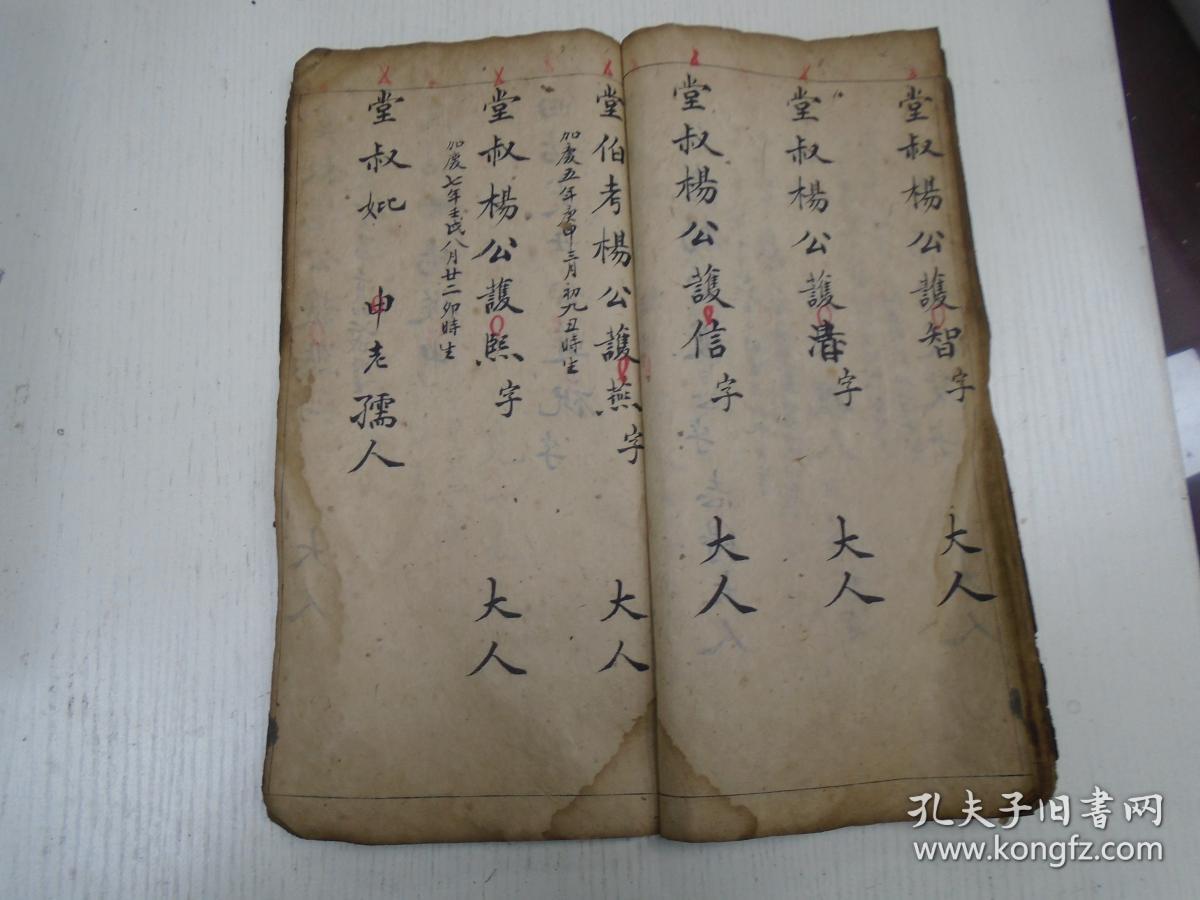 堂叔楊公護智字 大人
堂叔楊公護濬字 大人
堂叔楊公護信字 大人
堂伯考楊公護燕字 大人
加慶五年庚申三月初九丑時生
堂叔楊公護熙字 大人
加慶七年壬戌八月廿二卯時生
堂叔妣 申老孺人
孔夫子旧书网
www.kongfz.com